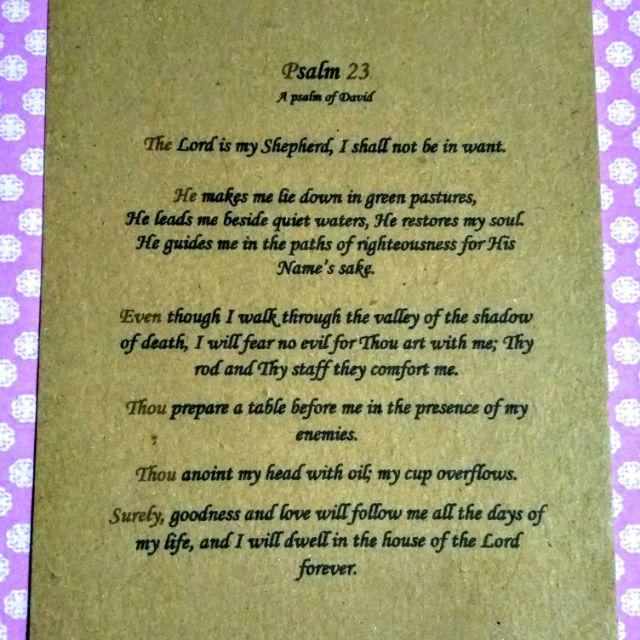 Psalm 23
A psalm of David
The Lord is my Shepherd, I shall not be in want.
He makes me lie down in green pastures,
He leads me beside quiet waters, He restores my soul.
He guides me in the paths of righteousness for His
Name's sake.
Even though I walk through the valley of the shadow
of death, I will fear no evil for Thou art with me; Thy
rod and Thy staff they comfort me.
Thou prepare a table before me in the presence of my
enemies.
Thou anoint my head with oil; my cup overflows.
Surely, goodness and love will follow me all the days of
my life, and I will dwell in the house of the Lord
forever.